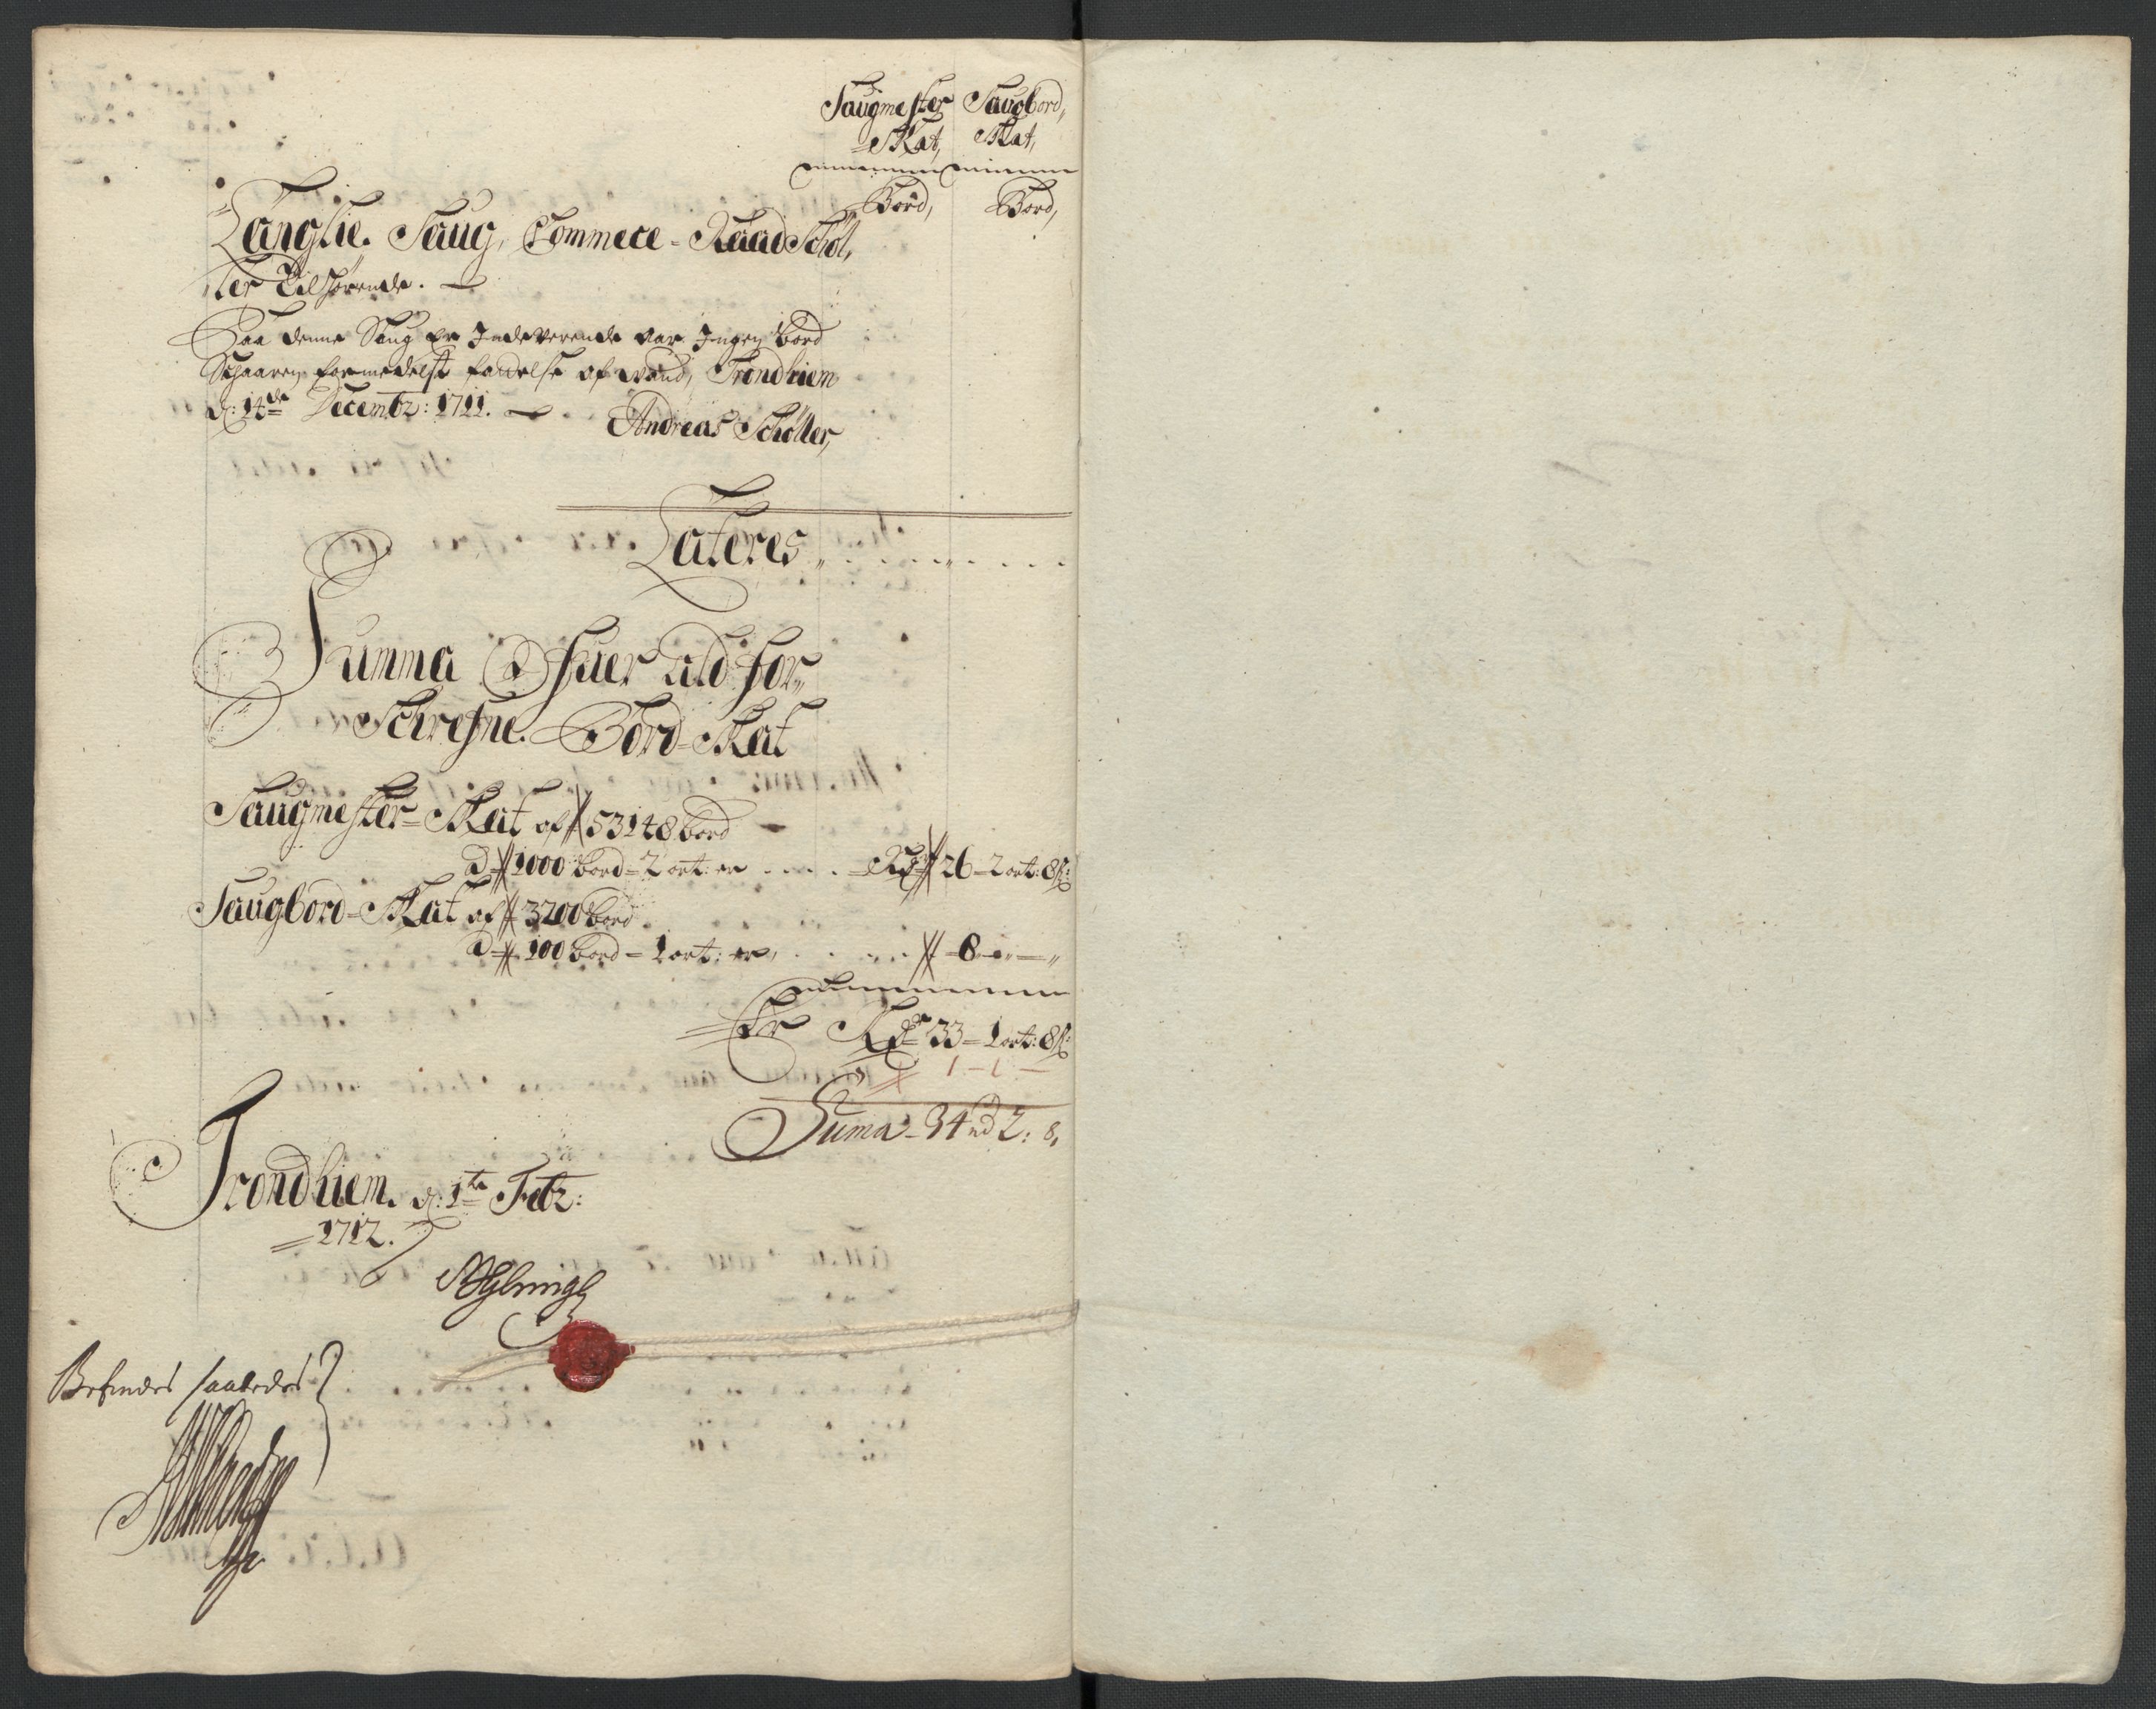 Saugmester Saugbord,,
Skat, Skat,
Bord, Bord,
Langlie. Saug, Commece-Raad Schöl,
ler Tilhørende.
Paa denne Saug er Indeverende Aar Ingen Bord
Schaaren formedelst fadelse af Vand, Trondhiem
d: 14de Decembr: 1711.
Andreas Schöller,
Lateres
Summa Ofuer ald for,,
Schrefne. Bord-Skat
Saugmester-Skat af 53148 bord
à 1000 bord - 2 ort: er . . . . Rdr 26 - 2 ort: 8 s:
Saugbord-Skat af 3200 bord
à 100 bord - 1 ort: er, . . . . 8 - " - "
Er Rdr 33 - 1 ort: 8 s:
1 - 1 -
Suma - 34 rd 2: 8,
Trondhiem. d: 1te Febr:
1712.
Befindes saaledes